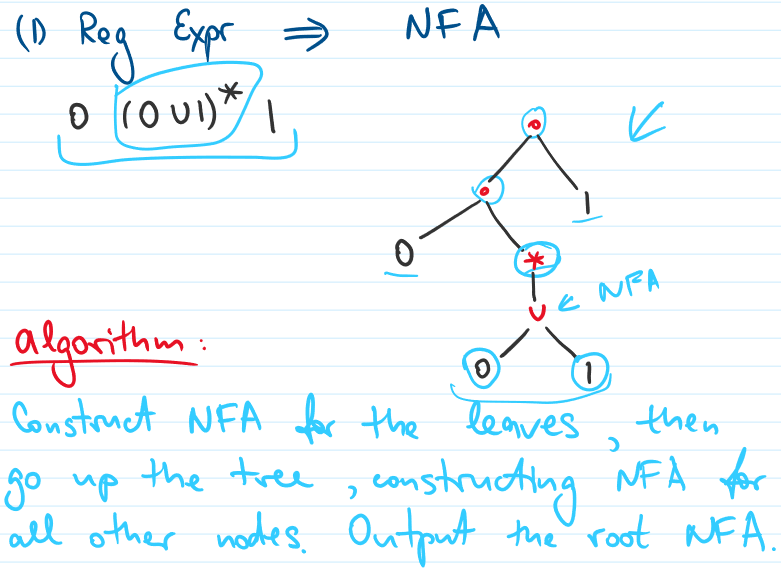 (1) Reg Expr ⇒ NFA
0 (0 ∪ 1)* 1
•
•
1
0
*
∪ ← NFA
0 1
algorithm:
Construct NFA for the leaves, then
go up the tree, constructing NFA for
all other nodes. Output the root NFA.